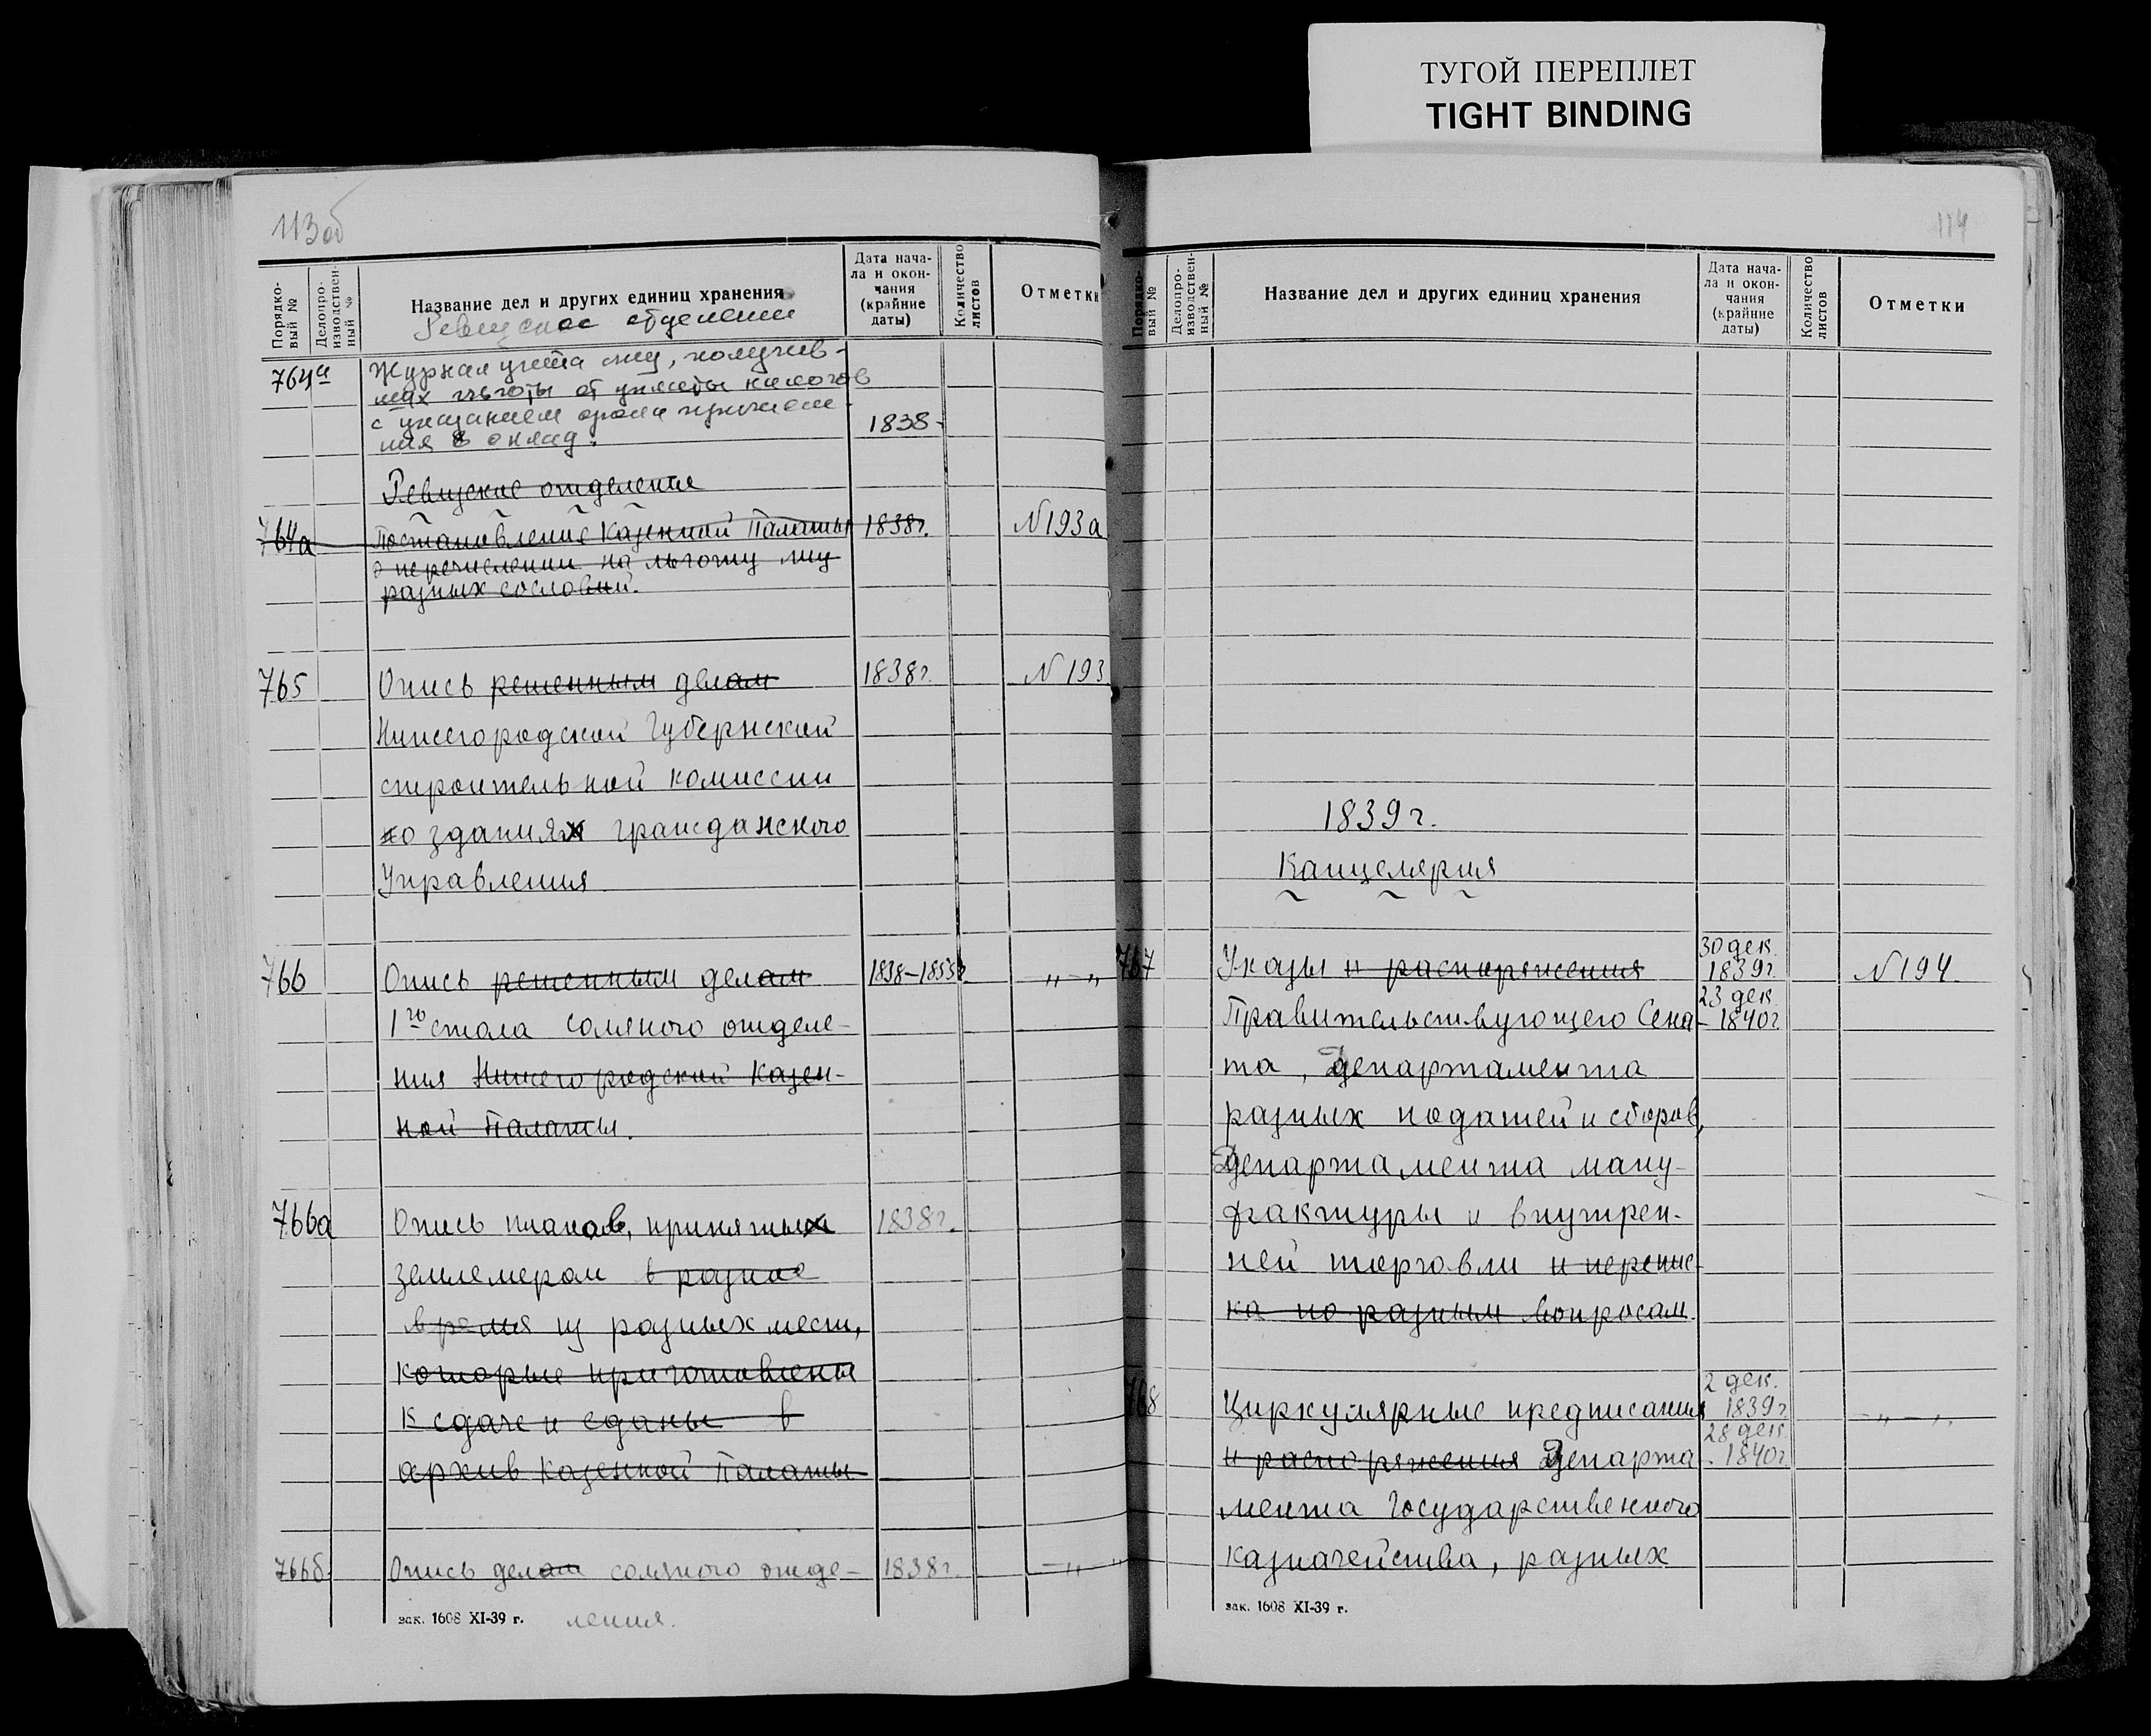 ТУГОЙ ПЕРЕПЛЕТ
TIGHT BINDING
113об
Порядко-
вый №
Делопро-
изводствен-
ный №
Название дел и других единиц хранения
Дата нача-
ла и окон-
чания
(крайние
даты)
Количество
листов
Отметки
Ревизское отделение
764а
Журнал учета лиц, получив-
ших льготы от уплаты налогов
с указанием срока причисле-
ния в оклад.
1838-
Ревизские отделения
764а
Постановления Казенной Палаты
1838г.
№193а
о перечислении на льготу лиц
разных сословий.
765
Опись решенным делам
1838г.
№193
Нижегородской Губернской
строительной комиссии
по зданиях гражданского
Управления
766
Опись решенным делам
1838-1853г
„-„
1го стола Соляного отделе-
ния Нижегородской Казен-
ной Палаты.
766а
Опись планов, принятых
1838г.
землемером в разное
время из разных мест,
которые приготовлены
к сдаче и сданы в
архив Казенной Палаты
766б
Опись делам соляного отде-
1838г.
-„-„
зак. 1608 XI-39 г.
ления.
114
Порядко-
вый №
Делопро-
изводствен-
ный №
Название дел и других единиц хранения
Дата нача-
ла и окон-
чания
(крайние
даты)
Количество
листов
Отметки
1839г.
Канцелярия
767
Указы и распоряжения
30 дек.
1839г.
№194
23 дек.
Правительствующего Сена
- 1840г.
та, Департамента
разных податей и сборов,
Департамента ману-
фактуры и внутрен-
ней торговли и перепис-
ка по разным вопросам.
768
2 дек.
Циркулярные предписания
1839г
-„-„
28 дек
и распоряжения Департа
- 1840г
мента Государственного
казначейства, разных
зак. 1608 XI-39 г.